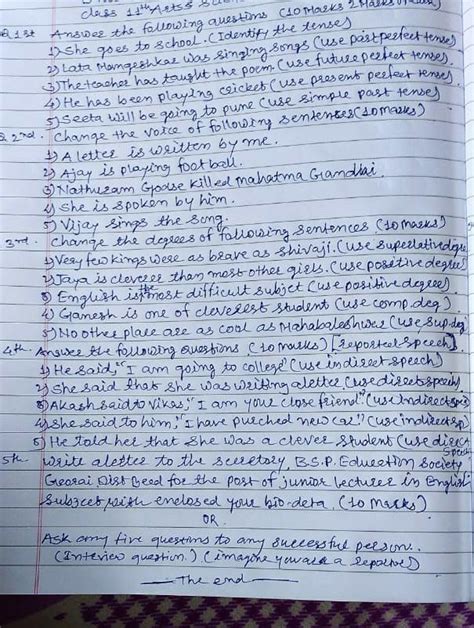 class 11th Arts &
Q.1st Answer the following questions (10 Marks 2 Marks
1) She goes to school. (Identify the tense)
2) Lata Mangeshkar was singing songs (use past perfect tense)
3) The teacher has taught the poem (use future perfect tense)
4) He has been playing cricket (use present perfect tense)
5) Seeta will be going to pune (use simple past tense)
Q. 2nd. Change the voice of following sentences (10 Marks)
1) A letter is written by me.
2) Ajay is playing football.
3) Nathuram Godse killed Mahatma Gandhai.
4) she is spoken by him.
5) Vijay sings the song.
3rd. Change the degrees of following sentences (10 Marks)
1) Very few kings were as brave as shivaji. (use superlative degree
2) Jaya is cleverer than most other girls. (use positive degree)
3) English is the most difficult subject (use positive degree)
4) Ganesh is one of cleverest student (use comp. deg)
5) No other place are as cool as Mahabaleshwer (use sup. deg
4th. Answer the following questions (10 marks) [reported speech]
1) He said, "I am going to college" (use indirect speech)
2) She said that she was writing a letter (use direct speech)
3) Akash said to Vikas, "I am your close friend" (use Indirect sp)
4) she said to him, "I have purched new car." (use indirect sp)
5) He told her that she was a clever student (use direct
speech
5th. write a letter to the secretory, B.S.P. Education Society
Georai Dist Beed for the post of junior lecturer in English
Subject with enclosed your bio-deta. (10 Marks)
OR
Ask any five questions to any successful person.
(Interview question.) (imagine you are a reporter)
The end